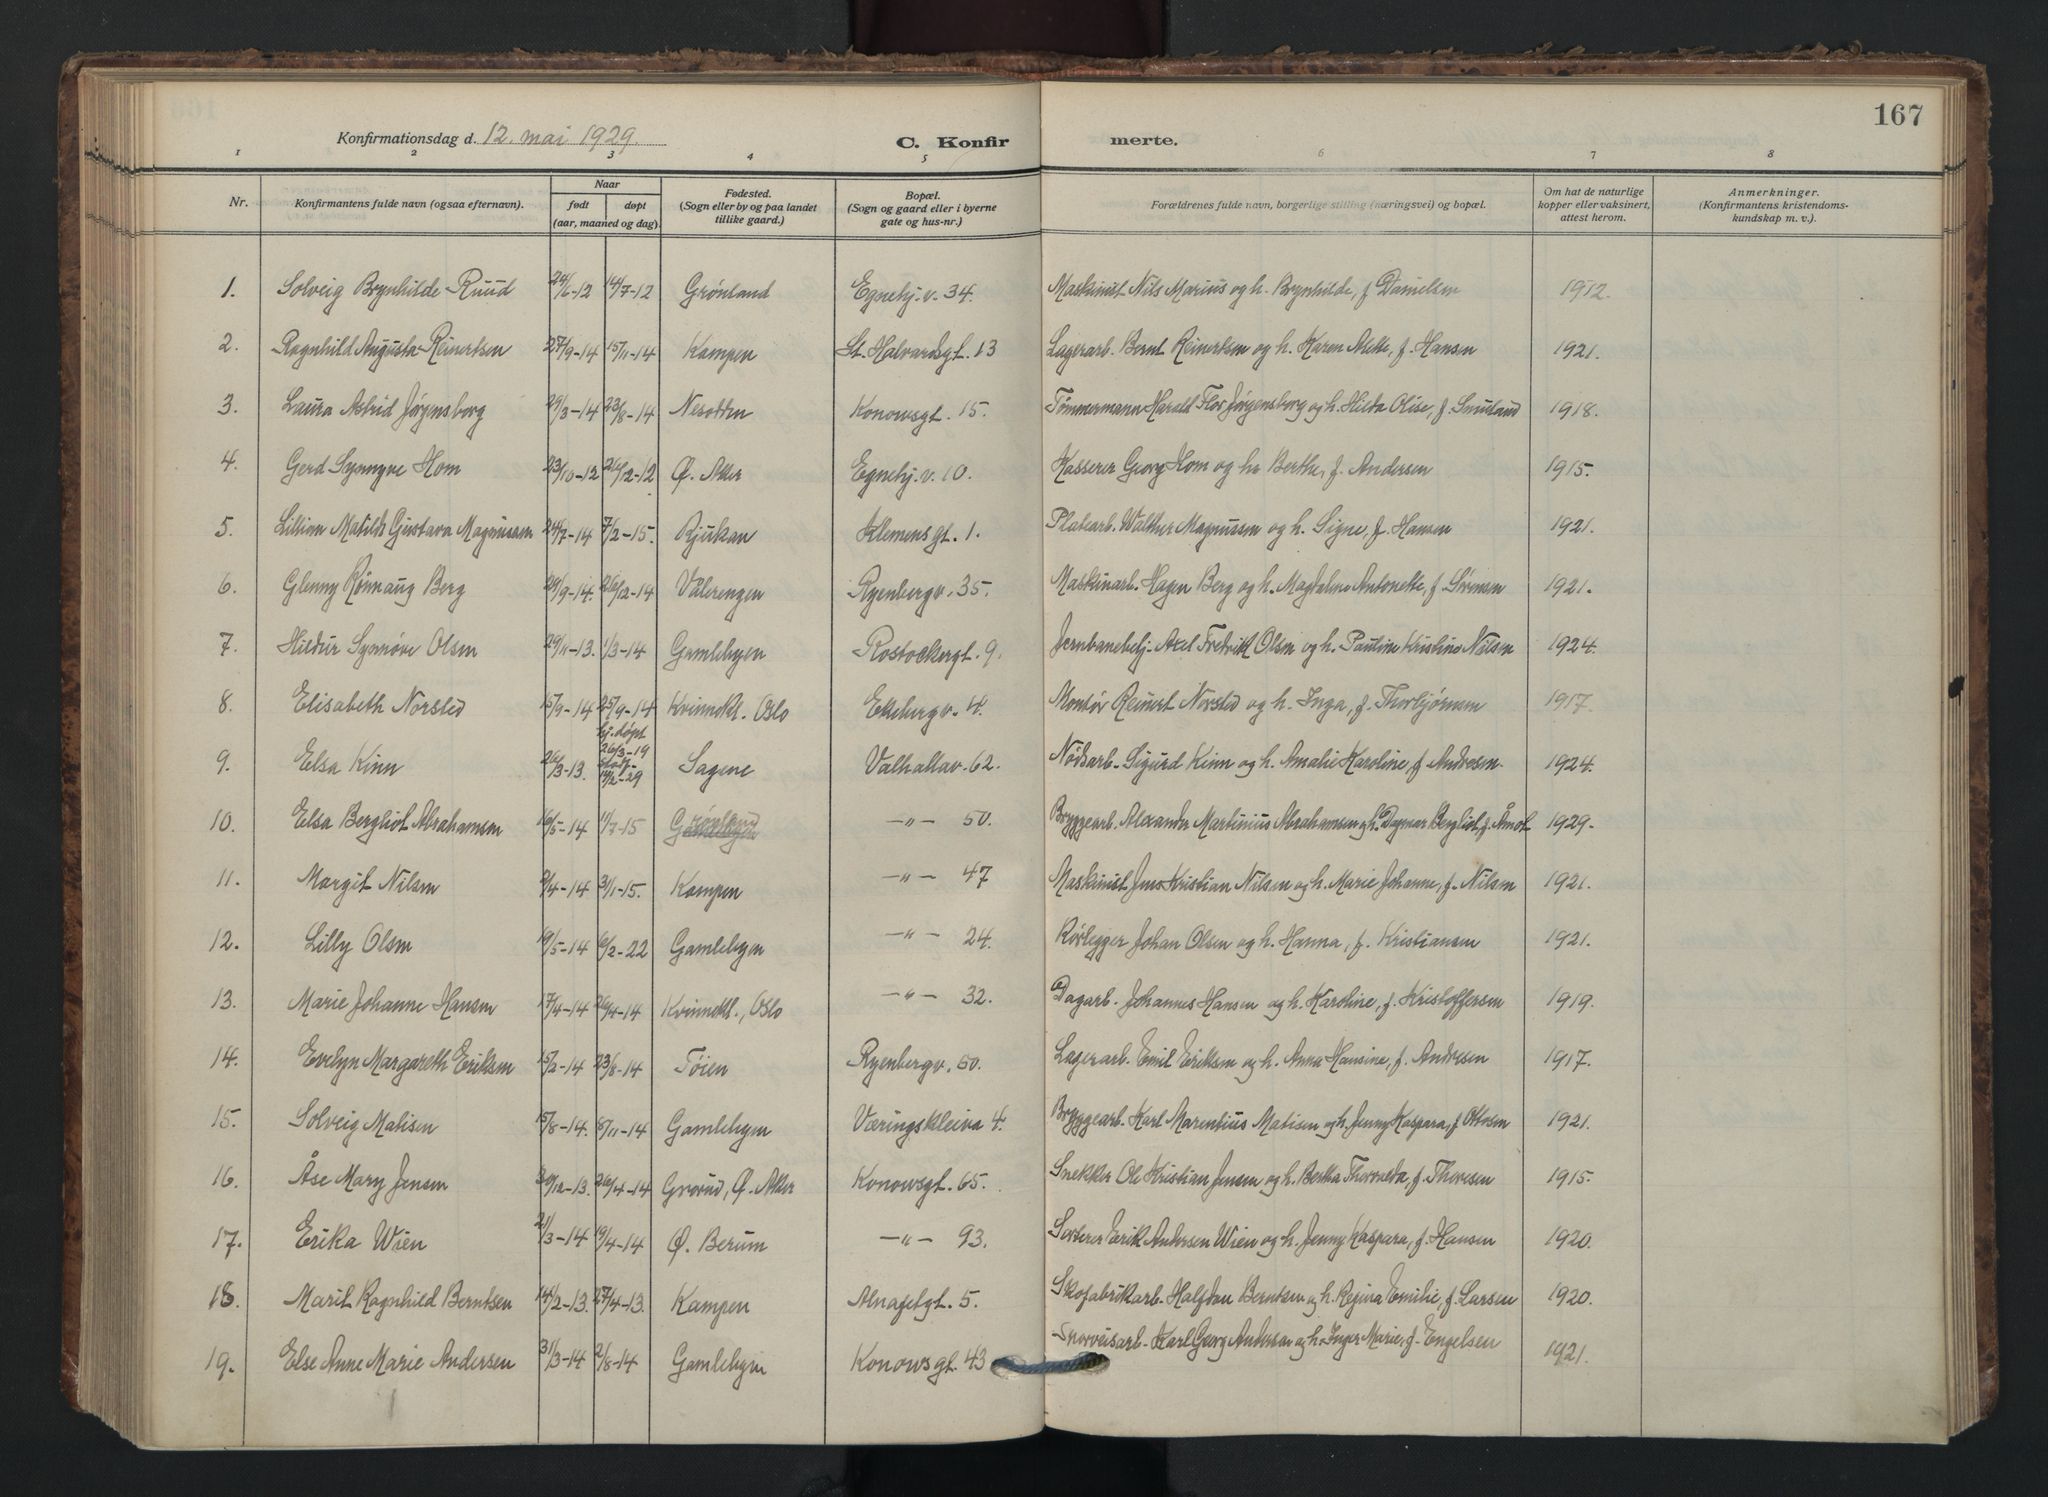 167
Konfirmationsdag d. 12. mai 1929. C. Konfirmerte.
1 2 3 4 5 6 7 8
Nr. Konfirmantens fulde navn (ogsaa efternavn). Naar født døpt (aar, maaned og dag) Fødested. (Sogn eller by og paa landet tillike gaard.) Bopæl. (Sogn og gaard eller i byerne gate og hus-nr.) Forældrenes fulde navn, borgerlige stilling (næringsvei) og bopæl. Om hat de naturlige kopper eller vaksinert, attest herom. Anmerkninger. (Konfirmantens kristendomskundskap m. v.)
1. Solveig Brynhilde Ruud 24/6-12 14/7-12 Grønland Egnehj.v. 34. Maskinist Nils Marius og h. Brynhilde, f. Danielsen 1912.
2. Ragnhild Augusta Reinertsen 27/9-14 15/11-14 Kampen St. Halvardsgt. 13 Lagerarb. Bernt Reinertsen og h. Karen Alette, f. Hansen 1921.
3. Laura Astrid Jørgensborg 29/3-14 23/8-14 Nesodden Konowsgt. 15. Tømmermann Harald Flor Jørgensborg og h. Hilda Olise, f. 1918.
4. Gerd Synnyve Hom 23/10-12 26/12-12 Ø. Aker Egnehj.v. 10. Kasserer Georg Hom og h. Berthe, f. Andersen 1915.
5. Lillian Matilde Gustava Magnussen 24/7-14 7/2-15. Rjukan Klemensgt. 1. Platearb. Walther Magnussen og h. Signe, f. Hansen 1921.
6. Glenny Rønnaug Berg 29/9-14. 26/12-14 Vålerengen Ryenbergv. 35. Maskinarb. Hagen Berg og h. Magdalene Antonette, f. Sørensen 1921.
7. Hildur Synnøve Olsen 29/11-13. 1/3-14 Gamlebyen Rostockergt. 9. Jernbanebetj. Axel Fredrik Olsen og h. Pauline Kristine Nilsen 1924.
8. Elisabeth Norsted 15/9-14 25/9-14 Kvinnekl. Oslo Ekebergv. 4. Montør Reinert Norsted og h. Inga, f. Thorbjørnsen 1917.
9. Elsa Kinn 26/3-13. hj.døpt 26/3-19 stadf. 14/2-29 Sagene Valhallav. 62. Nødsarb. Sigurd Kinn og h. Amalie Karoline, f. Andresen 1924.
10. Elsa Bergliot Abrahamsen 16/5-14 11/7-15 Grønland —„— 50. Bryggearb. Alexander Martinius Abrahamsen og h. Dagmar Bergliot, f. Åmot 1929.
11. Margit Nilsen 9/4-14 3/1-15. Kampen —„— 47 Maskinist Jens Kristian Nilsen og h. Marie Johanne, f. Nilsen 1921.
12. Lilly Olsen 19/5-14 6/2-22 Gamlebyen —„— 24. Rørlegger Johan Olsen og h. Hanna, f. Kristiansen 1921.
13. Marie Johanne Hansen 17/4-14 26/4-14 Kvinnekl., Oslo —„— 32. Dagarb. Johannes Hansen og h. Karoline, f. Kristoffersen 1919.
14. Evelyn Margareth Eriksen 15/2-14 23/8-14 Tøien Ryenbergv. 50. Lagerarb. Emil Eriksen og h. Anna Hansine, f. Andresen 1917.
15. Solveig Matisen 15/8-14. 8/11-14 Gamlebyen Væringskleiva 4. Bryggearb. Karl Marentius Matisen og h. Jenny Kaspara, f. Ottosen 1921.
16. Åse Mary Jensen 30/12-13. 26/4-14 Grorud, Ø. Aker Konowsgt. 65. Snekker Ole Kristian Jensen og h. Bertha Thorvalda, f. Thoresen 1915.
17. Erika Wien 21/3-14 19/4-14 Ø. Berum —„— 93. Sorterer Erik Andersen Wien og h. Jenny Kaspara, f. Hansen 1920.
18. Marit Ragnhild Berntsen 14/2-13. 27/4-13. Kampen Alnafetgt. 5. Skofabrikarb. Halfdan Berntsen og h. Regina Emilie, f. Larsen 1920.
19. Else Anne Marie Andersen 31/3-14 2/8-14 Gamlebyen Konowsgt. 43 Sporveisarb. Karl Georg Andersen og h. Inger Marie, f. Engelsen 1921.